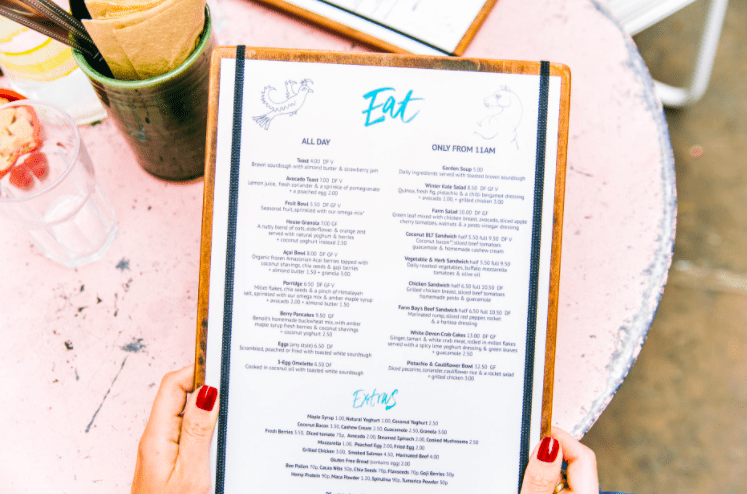 Eat
ALL DAY
Toast 4.00 DF V
Brown sourdough with almond butter & strawberry jam
Avocado Toast 7.00 DF V
Lemon juice, fresh coriander & a sprinkle of pomegranate
+ a poached egg 2.00
Fruit Bowl 5.50 DF V
Seasonal fruit, sprinkled with our omega mix
House Granola 7.00 DF V
A nutty blend of oats, elderflower & orange and
served with natural yoghurt & berries
+ coconut yoghurt instead 2.50
Açai Bowl 8.00 DF V
Organic frozen Amazonian Acai berries topped with
coconut shavings, chia seeds & goji berries
+ almond butter 1.50 + granola 3.00
Porridge 6.50 DF GF V
Millet flakes, chia seeds & a pinch of Himalayan
salt, sprinkled with our omega mix & amber maple syrup
+ avocado 2.00 + almond butter 1.50
Berry Pancakes 9.00 GF
Benoit's homemade buckwheat mix, with amber
maple syrup fresh berries & coconut shavings
+ coconut yoghurt 2.50
Eggs (any style) 6.50 DF
Scrambled, poached or fried with toasted white sourdough
3-Egg Omelette 6.50 DF
Cooked in coconut oil with toasted white sourdough
ONLY FROM 11AM
Garden Soup 5.00
Daily ingredients served with toasted brown sourdough
Winter Kale Salad 8.50 DF GF V
Quinoa, fresh fig, pistachio & a chilli bergamot dressing
+ avocado 2.00 + grilled chicken 3.00
Farm Salad 10.00 DF GF
Green leaf mixed with chicken breast, avocado, sliced apple
cherry tomatoes, walnuts & a pesto vinegar dressing
Coconut BLT Sandwich half 5.50 full 9.50 DF V
Coconut bacon, sliced beef tomatoes
guacamole & homemade cashew cream
Vegetable & Herb Sandwich half 5.50 full 9.50 V
Daily roasted vegetables, buffalo mozzarella
tomatoes & olive oil
Chicken Sandwich half 6.50 full 10.50 DF
Grilled chicken breast, sliced beef tomatoes
homemade pesto & guacamole
Farm Boy's Beef Sandwich half 6.50 full 10.50 DF
Marinated rump, sliced red pepper, rocket
& a harissa dressing
White Devon Crab Cakes 13.00 DF GF
Ginger, tamari & white crab meat, rolled in millet flakes
served with a spicy lime yoghurt dressing & green leaves
+ guacamole 2.50
Pistachio & Cauliflower Bowl 12.50 GF
Diced pecorino, coriander, cauliflower rice & a rocket salad
+ grilled chicken 3.00
Extras
Maple Syrup 1.00, Natural Yoghurt 1.60, Coconut Yoghurt 2.50
Coconut Bacon 3.50, Cashew Cream 2.50, Guacamole 2.50, Granola 3.00
Fresh Berries 3.50, Diced tomato 75p, Avocado 2.00, Steamed Spinach 2.00, Cooked Mushrooms 2.50
Mozzarella 1.00, Poached Egg 2.00, Fried Egg 2.00
Grilled Chicken 3.00, Smoked Salmon 4.50, Marinated Beef 4.00
Gluten Free Bread (contains egg) 2.00
Bee Pollen 70p, Cacao Nibs 50p, Chia Seeds 70p, Flaxseeds 70p, Goji Berries 50p
Hemp Protein 90p, Maca Powder 1.30, Spirulina 90p, Turmeric Powder 50p